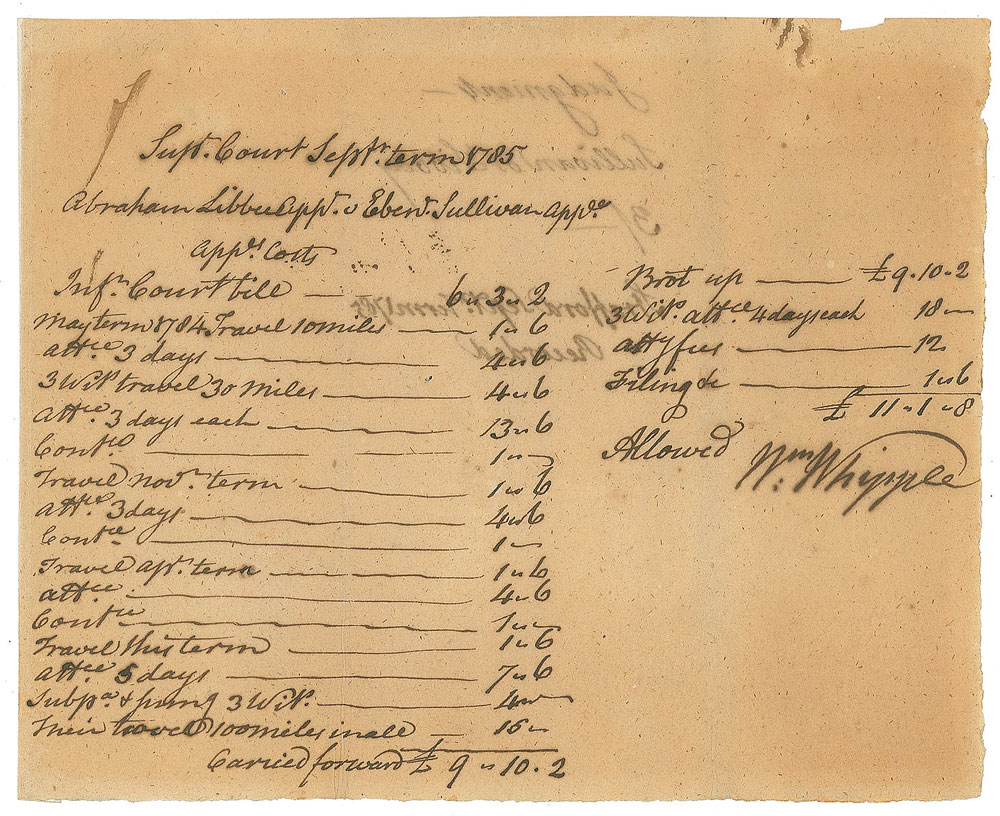 Supr. Court Septr. term 1785
Abraham Libbee Appt. v Ebenr. Sullivan Appee.
Appts. Costs
Infr. Court bill — 6 " 3 " 2
May term 1784 Travel 10 miles — 1 " 6
attce. 3 days — 4 " 6
3 Wits travel 30 miles — 4 " 6
attce. 3 days each — 13 " 6
Contce. — 1 "
Travel Novr. term — 1 " 6
attce. 3 days — 4 " 6
Contce. — 1 "
Travel Apr. term — 1 " 6
attce. — 4 " 6
Contce — 1 "
Travel this term — 1 " 6
attce 5 days — 7 " 6
Subpa. & 3 Wits. — 4 "
Their travel 100 miles in all — 15 "
Carried forward £ 9 " 10 . 2
Brot up — £ 9 . 10 . 2
3 Wits. attce. 4 days each 18 "
atty fees — 12
Filing &c — 1 " 6
£ 11 " 1 " 8
Allowed
Wm. Whipple